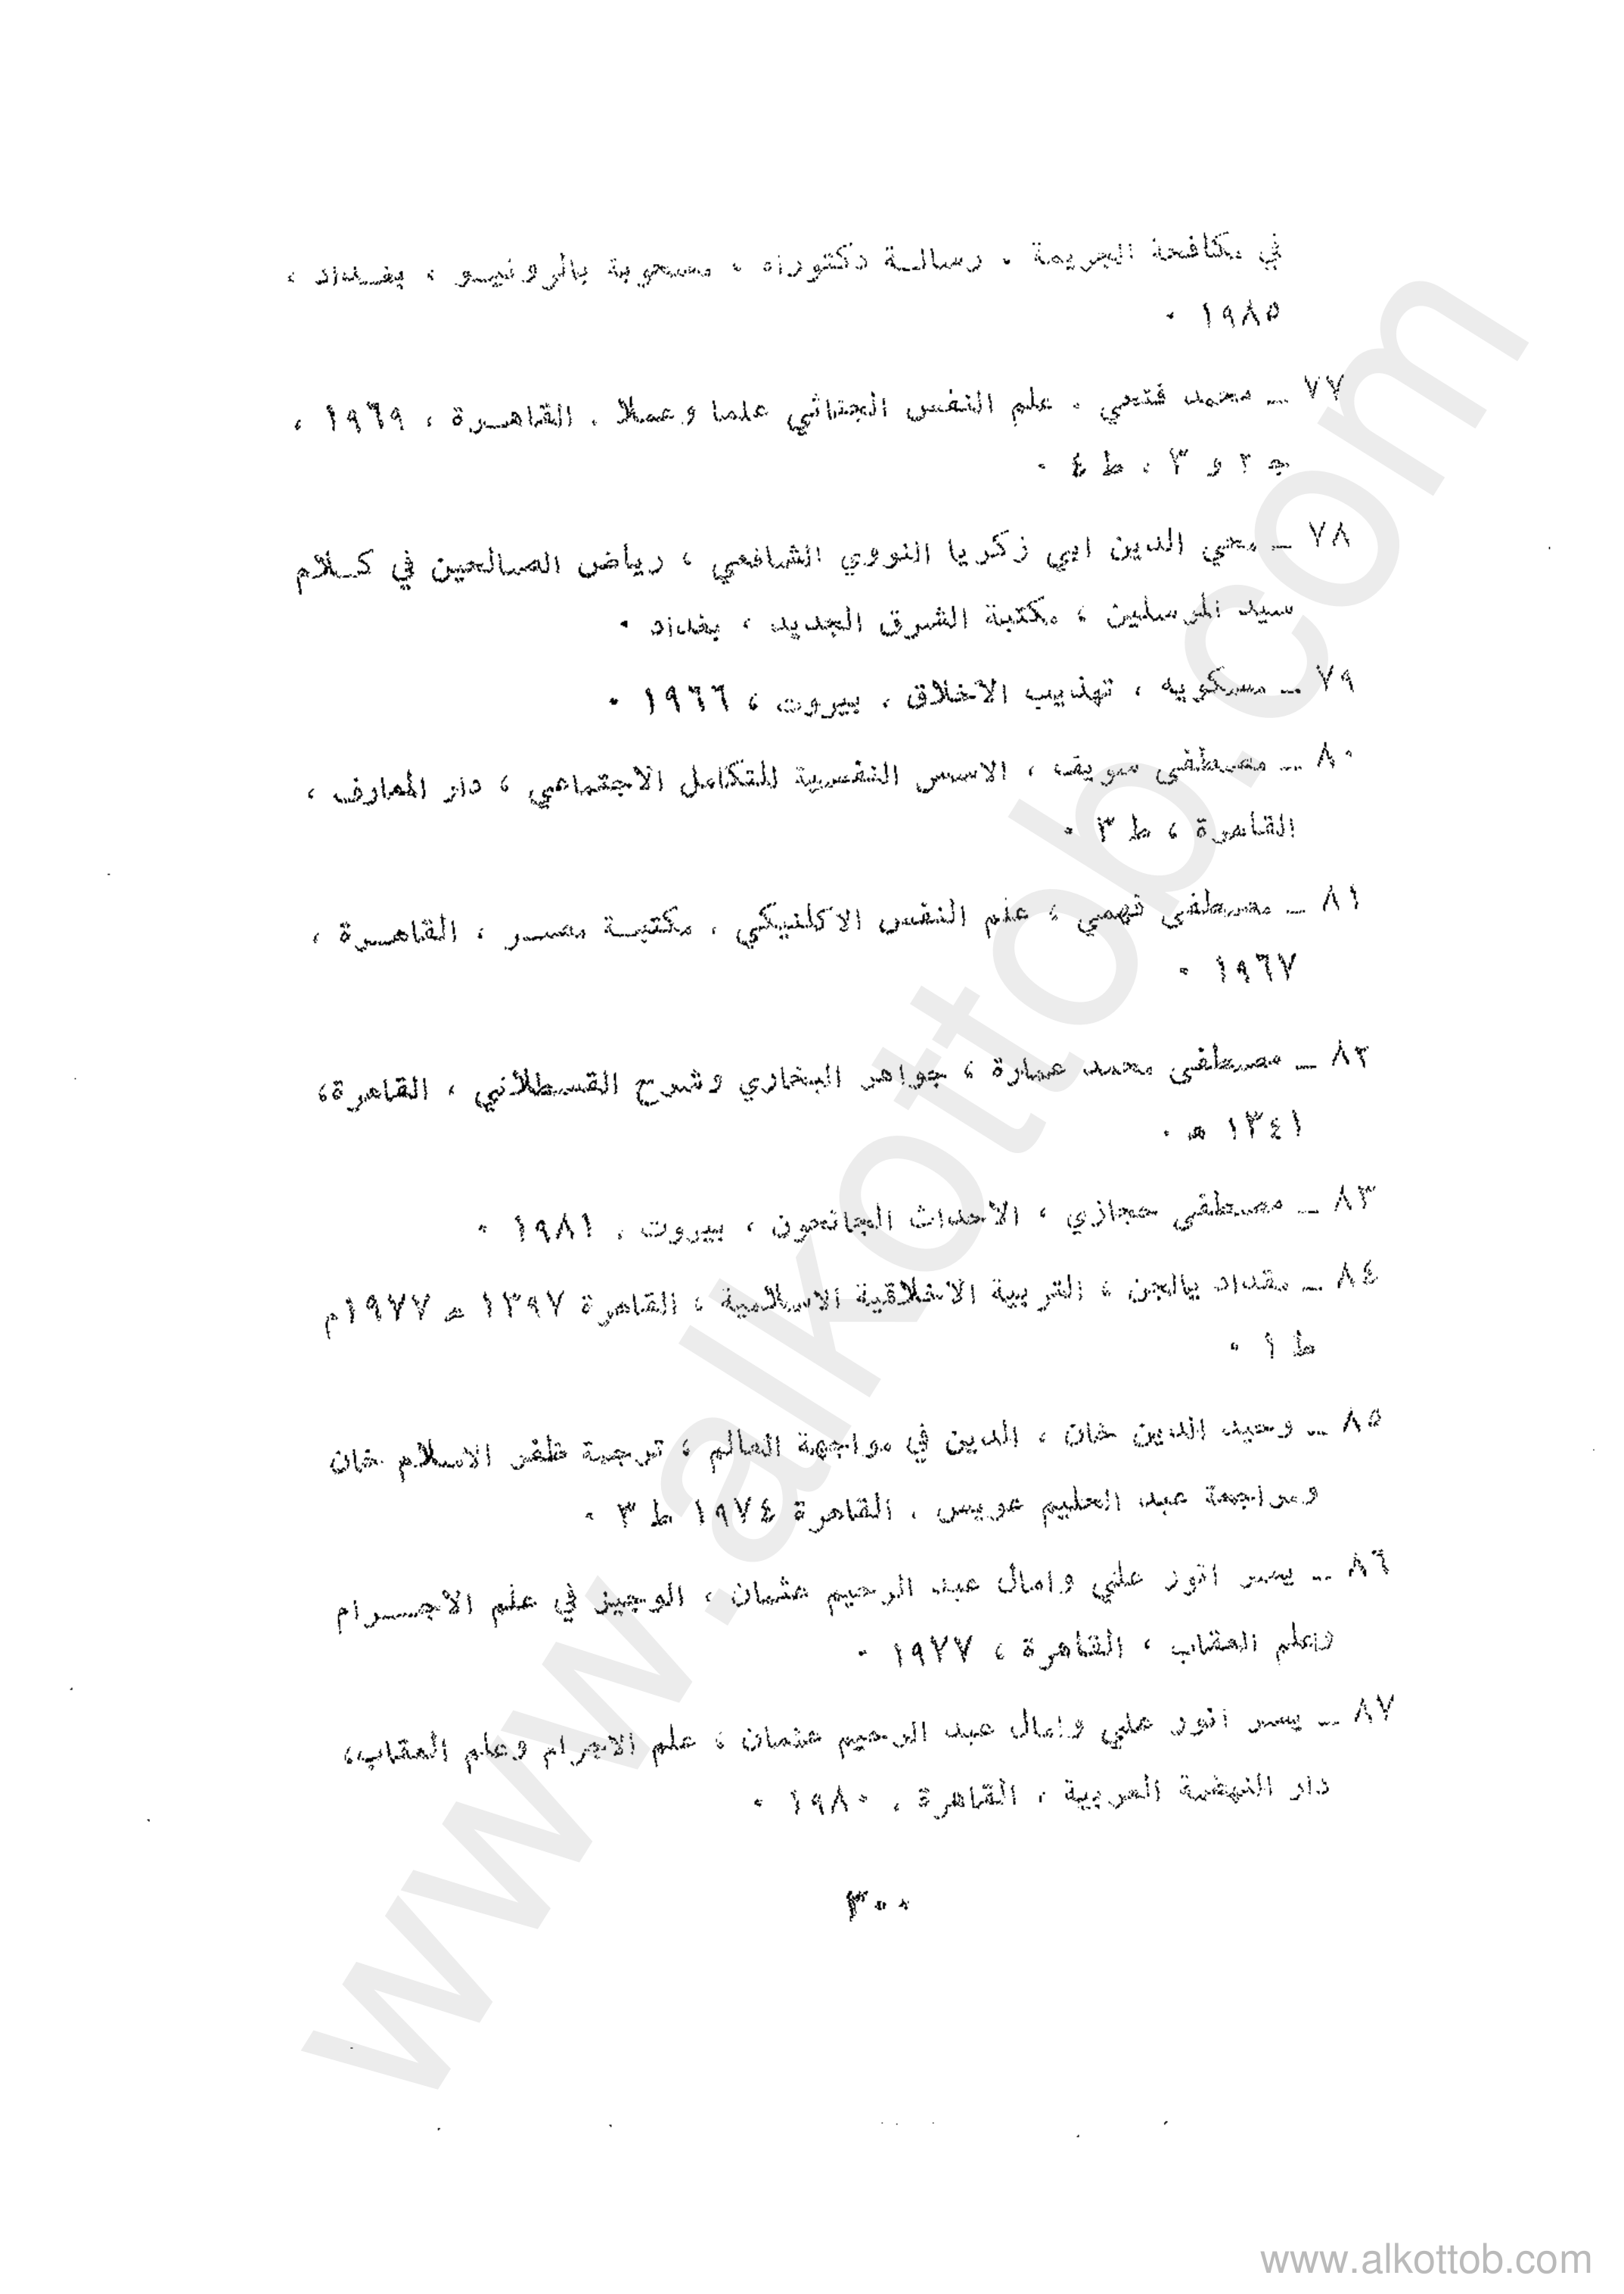 في مكافحة الجريمة ، رسالـة دكتوراه ، مسحوبة بالرونيـو ، بغـداد ،
١٩٨٥ ٠
٧٧ ــ محمد فتحي ، علم النفس الجنائي علما وعملا ، القاهـرة ، ١٩٦٩ ،
جـ ٢ و ٣ ، ط ٤ ٠
٧٨ ــ محي الدين ابي زكريا النووي الشافعي ، رياض الصالحين في كـلام
سيد المرسلين ، مكتبة الشرق الجديد ، بغداد ٠
٧٩ ــ مسكويه ، تهذيب الاخلاق ، بيروت ، ١٩٦٦ ٠
٨٠ ــ مصطفى سويف ، الاسس النفسية للتكامل الاجتماعي ، دار المعارف ،
القاهرة ، ط ٣ ٠
٨١ ــ مصطفى فهمي ، علم النفس الاكلنيكي ، مكتبـة مصـر ، القاهـرة ،
١٩٦٧ ٠
٨٢ ــ مصطفى محمد عمارة ، جواهر البخاري وشرح القسطلاني ، القاهرة،
١٣٤١ هـ ٠
٨٣ ــ مصطفى حجازي ، الاحداث الجانحون ، بيروت ، ١٩٨١ ٠
٨٤ ــ مقداد يالجن ، التربية الاخلاقية الاسلامية ، القاهرة ١٣٩٧ هـ ١٩٧٧م
ط ١ ٠
٨٥ ــ وحيد الدين خان ، الدين في مواجهة العالم ، ترجمة ظفر الاسلام خان
ومراجعة عبد الحليم عويس ، القاهرة ١٩٧٤ ط ٣ ٠
٨٦ ــ يسر انور علي وامال عبد الرحيم عثمان ، الوجيز في علم الاجـرام
وعلم العقاب ، القاهرة ، ١٩٧٧ ٠
٨٧ ــ يسر انور علي وامال عبد الرحيم عثمان ، علم الاجرام وعلم العقاب،
دار النهضة العربية ، القاهرة ، ١٩٨٠ ٠
٣٠٠
www.alkottob.com
www.alkottob.com